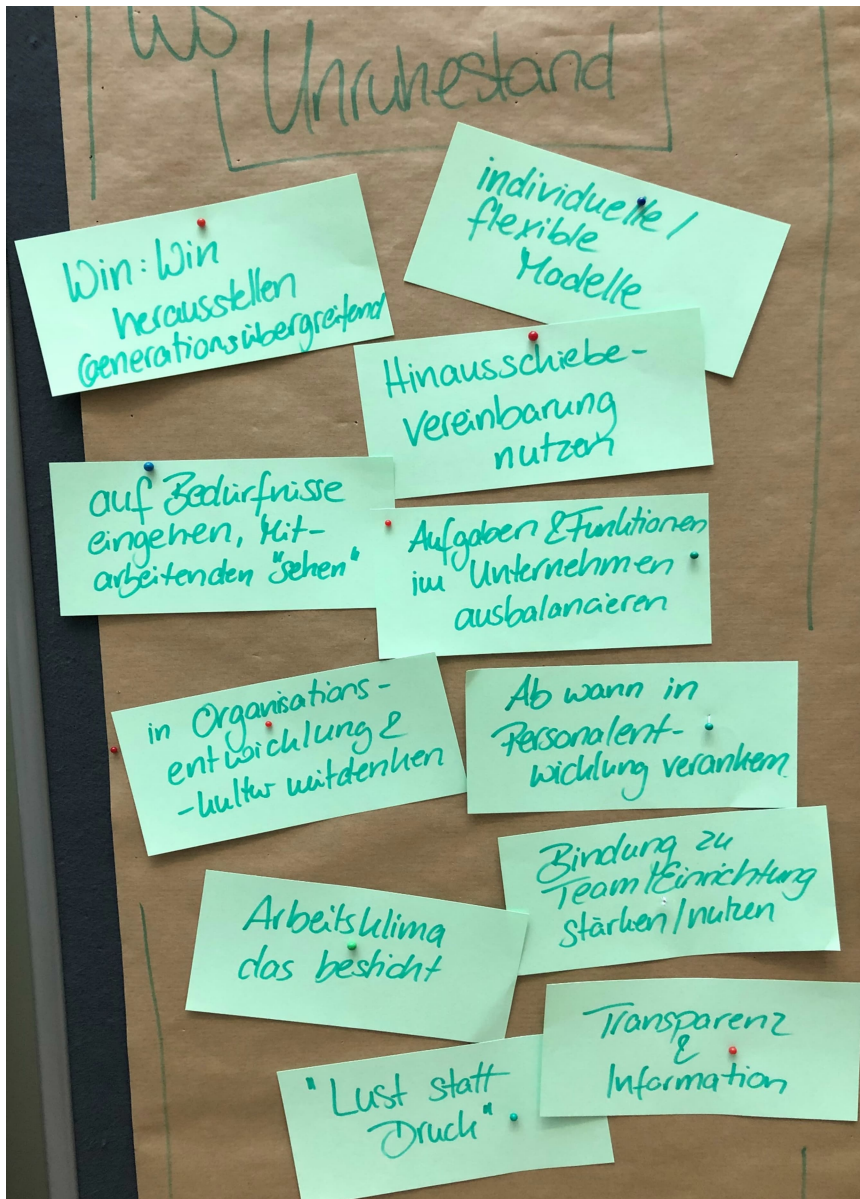 WS
Unruhestand
individuelle /
flexible
Modelle
Win:Win
herausstellen
Generationsübergreifend
Hinausschiebe-
vereinbarung
nutzen
auf Bedürfnisse
eingehen, Mit-
arbeitenden "sehen"
Aufgaben & Funktionen
im Unternehmen
ausbalancieren
in Organisations-
entwicklung &
-kultur mitdenken
Ab wann in
Personalent-
wicklung verankern
Bindung zu
Team/Einrichtung
stärken/nutzen
Arbeitsklima
das besticht
Transparenz
&
Information
"Lust statt
Druck"